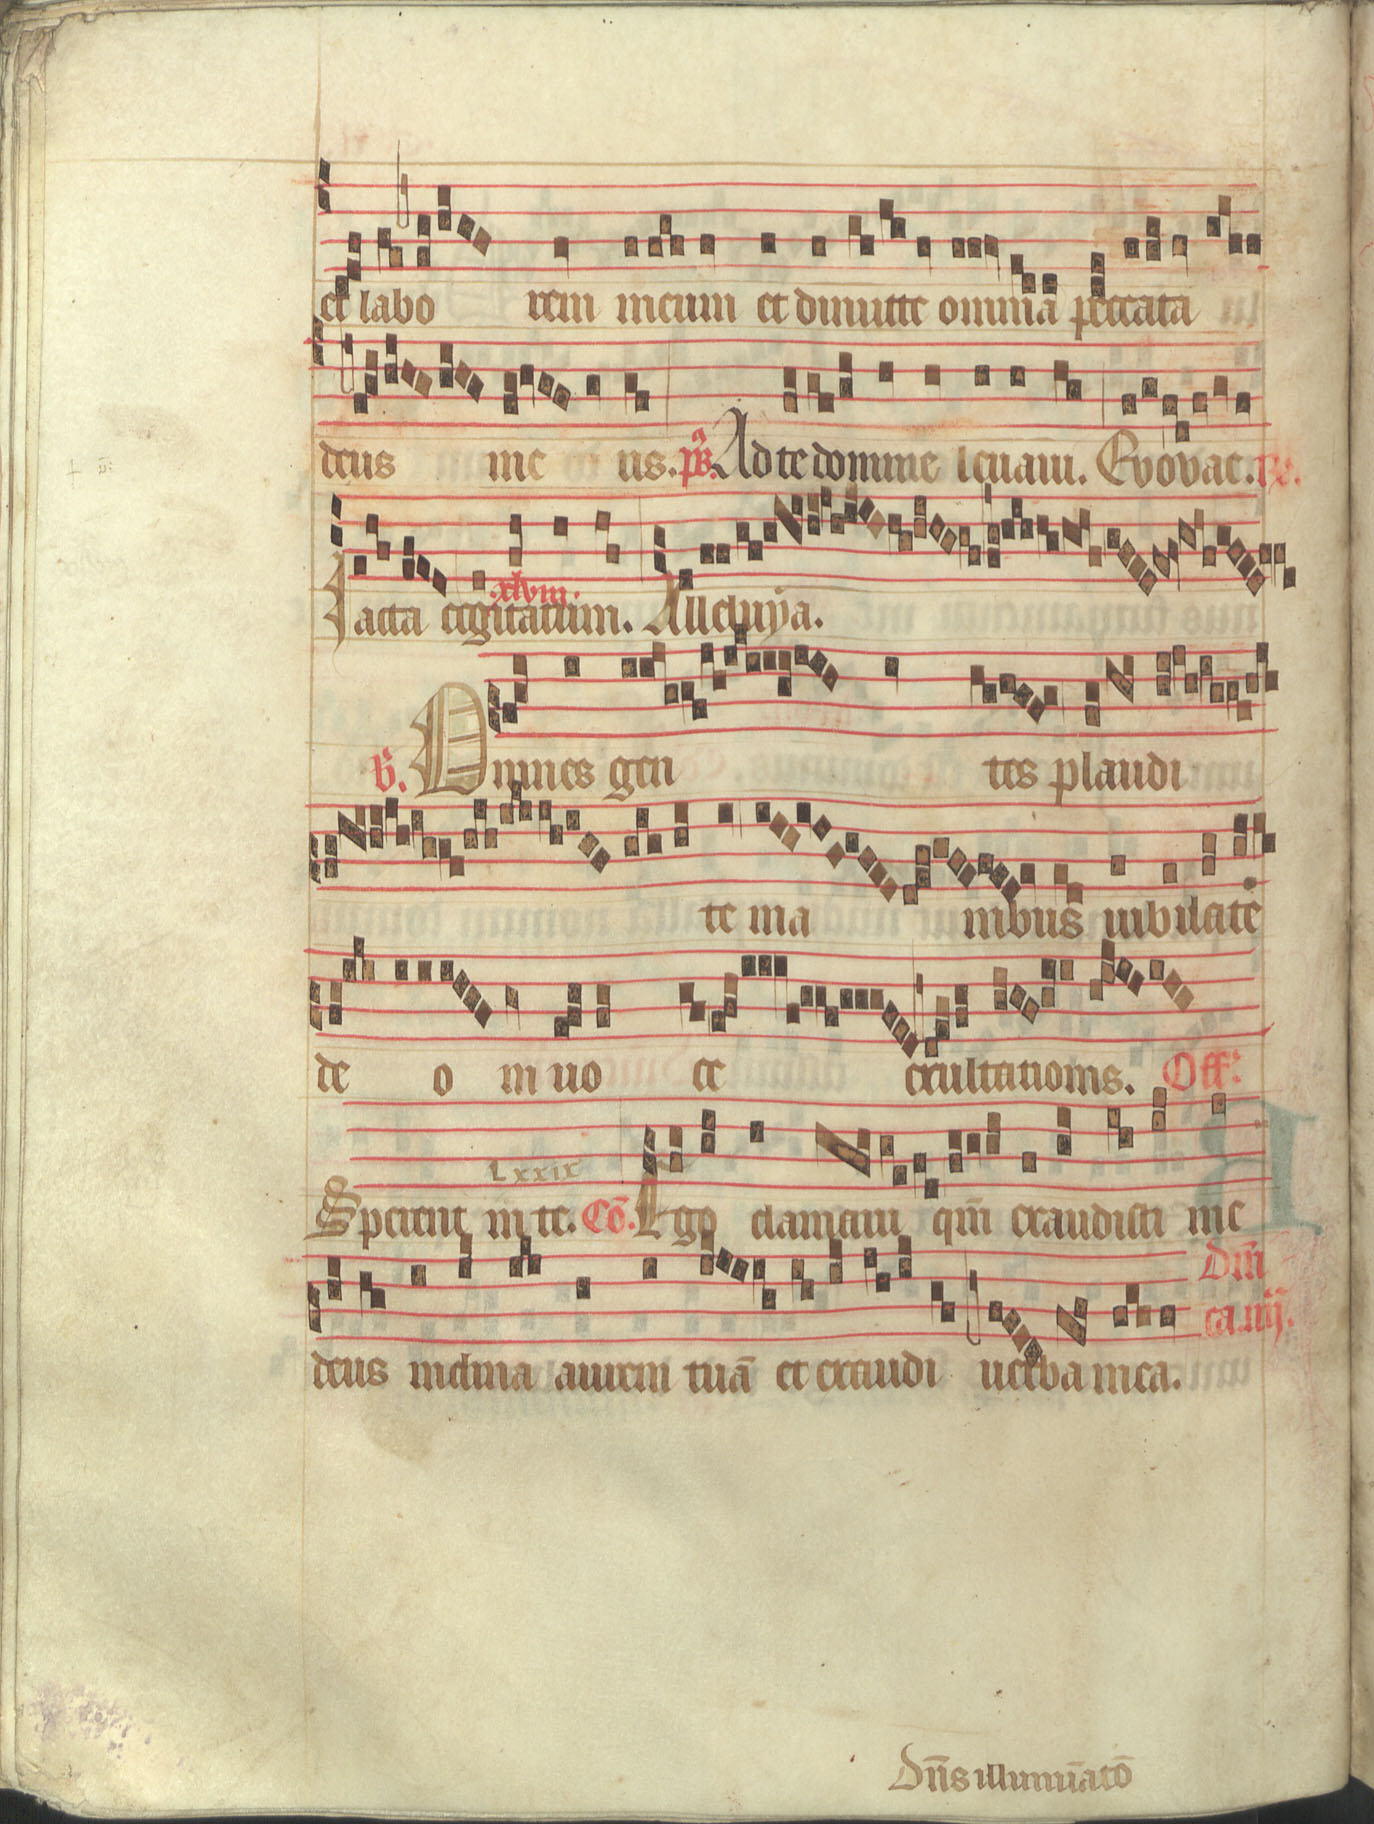 et labo rem meum et dimitte omnia peccata
deus me us. ps. Ad te domine leuaui. Evovae. R.
Iacta cogitatum. Alleluya.
xlviii.
V. Omnes gen tes plaudi
te ma nibus iubilate
de o in uo ce exultationis. Off.
Lxxix
Sperent in te. Cō. Ego clamaui qm̄ exaudisti me
dn̄i
deus inclina aurem tuā et exaudi uerba mea.
ca.iiij.
dn̄s illuminatō